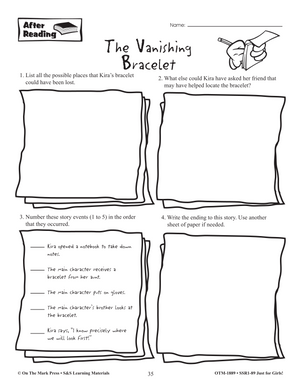 After
Reading
Name:
The Vanishing
Bracelet
1. List all the possible places that Kira's bracelet
could have been lost.
2. What else could Kira have asked her friend that
may have helped locate the bracelet?
3. Number these story events (1 to 5) in the order
that they occurred.
4. Write the ending to this story. Use another
sheet of paper if needed.
Kira opened a notebook to take down
notes.
The main character receives a
bracelet from her aunt.
The main character puts on gloves.
The main character's brother looks at
the bracelet.
Kira says, "I know precisely where
we will look first!"
© On The Mark Press • S&S Learning Materials
35
OTM-1889 • SSR1-89 Just for Girls!